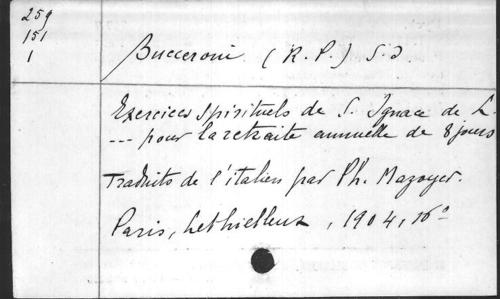 259
151
1
Bucceroni (R.P.) S.J
Exercices spirituels de S. Ignace de L.
--- pour la retraite annuelle de 8 jours
Traduits de l'italien par Ph. Mazoyer.
Paris, Lethielleux, 1904, 16°